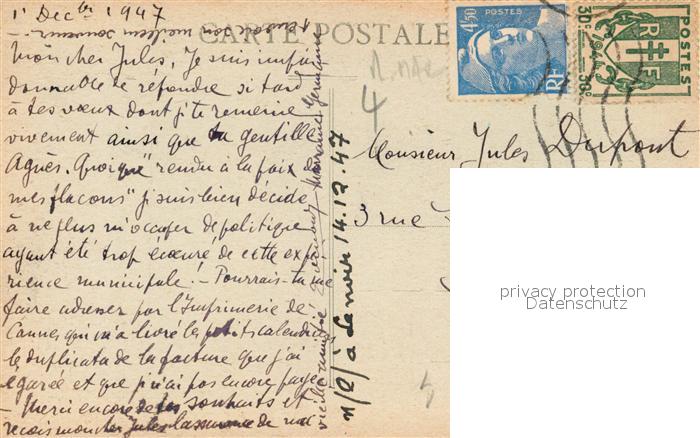 1 Decbre 1947
CARTE POSTALE
Mon cher Jules, Je suis impar
donnable de répondre si tard
à tes vœux dont j'te remercie
vivement ainsi que ta gentille
Agnès. Quoique "rendu à la paix
mes flacons" j'suis bien décidé
à ne plus m'occuper de politique
ayant été trop écœuré de cette expé
rience municipale. — Pourrais-tu me
faire adresser par l'Imprimerie de
Cannes qui m'a livré les petits calendriers
le duplicata de la facture que j'ai
égarée et que je n'ai pas encore payée
— Merci encore de tes souhaits et
reçois mon cher Jules l'assurance de ma
vieille amitié
Germaine
n/e/ à Lenoir 14.12.47
4
Monsieur Jules Dupont
3 rue
4F50
POSTES
RF
30c
POSTES
RF
30c
privacy protection
Datenschutz